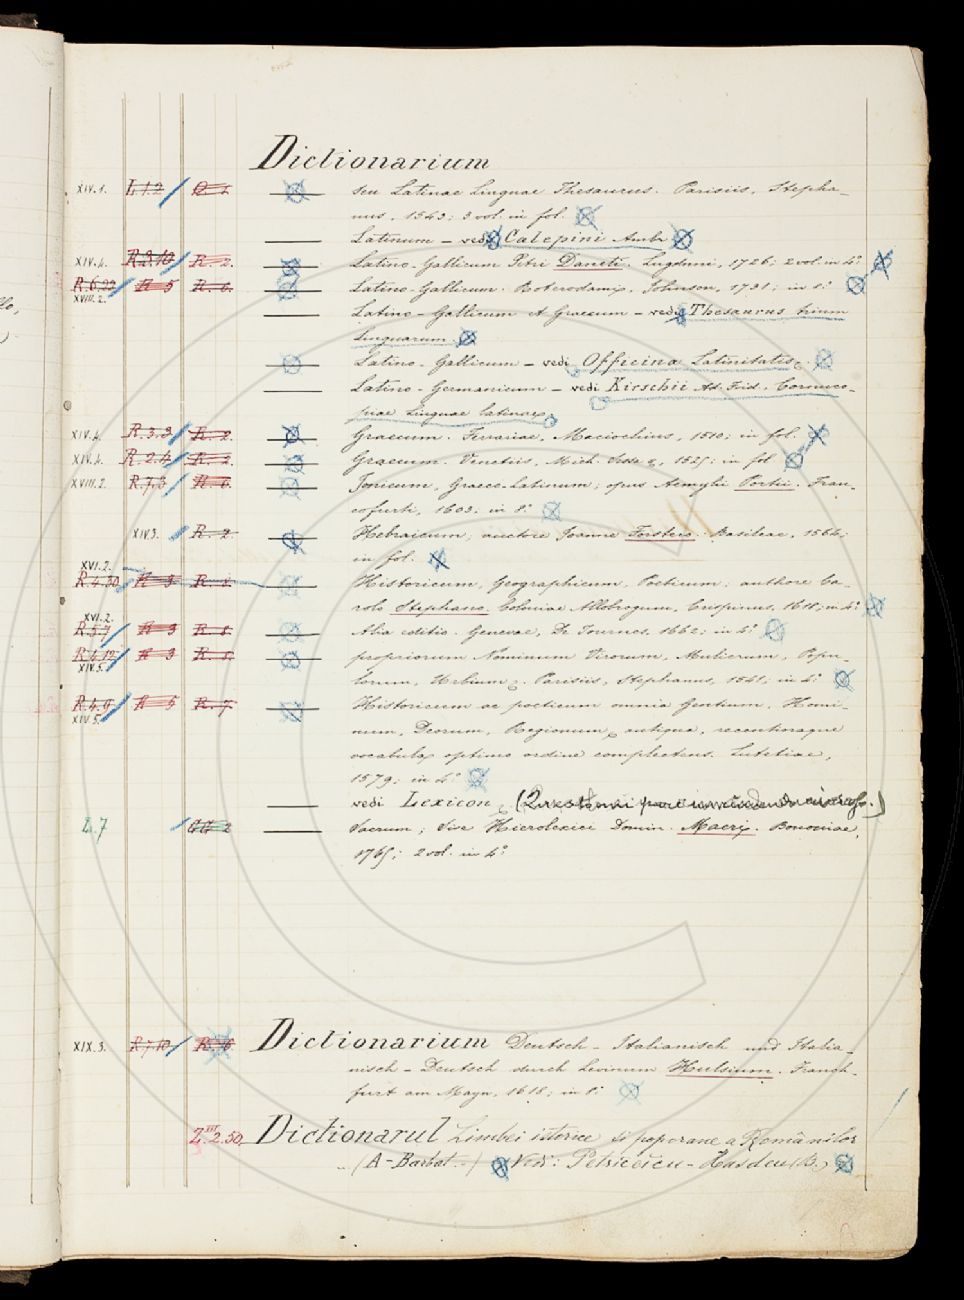 Dictionarium
XIV.1. L.1.2 — seu Latinae Linguae Thesaurus. Parisiis, Stepha-
nus, 1543; 3 vol. in fol.
— Latinum – vedi Calepini Ambr
XIV.4. R. 2. — Latino-Gallicum Petri Daneti. Lugduni, 1726; 2 vol. in 4°
R.6.22 R. 6. — Latino-Gallicum. Roterodami, Johnson, 1791; in 8°
XVIII.2.
— Latino-Gallicum et Graecum – vedi Thesaurus trium
linguarum.
— Latino-Gallicum – vedi Officina Latinitatis
— Latino-Germanicum – vedi Kirschii Ad. Frid. Cornuco-
piae Linguae latinae
XIV.4. R.3.3 R. 2 — Graecum. Ferrariae, Maciochius, 1510; in fol.
XIV.4. R.2.4 R. 2. — Graecum. Venetiis, 1525; in fol
XVIII.2. R.7.3 R. 6. — Jonicum, Graeco-Latinum; opus Aemylii Porti. Fran-
cofurti, 1603; in 8°
XIV.3. R. 2 — Hebraicum; auctore Joanne Forstero. Basileae, 1564;
in fol.
XVI.2.
R.4.30 — Historicum, Geographicum, Poeticum; authore Ca-
rolo Stephano. Coloniae Allobrogum, Crispinus, 1618; in 4°
XVI.2.
R.5.7 — Alia editio. Genevae, De Tournes, 1662; in 4°
R.4.12 — propriorum Nominum Virorum, Mulierum, Popu-
XIV.5.
lorum, Urbium. Parisiis, Stephanus, 1541; in 4°
R.4.9 R. 7 — Historicum ac poeticum omnia Gentium, Homi-
XIV.5.
num, Deorum, Regionum, antiqua, recentioraque
vocabula optimo ordine complectens. Lutetiae,
1579; in 4°
vedi Lexicon
L.7 — Sacrum; sive Hierolexici Domin. Macri. Bononiae,
1765; 2 vol. in 4°
XIX.3. R.7.10 Dictionarium Deutsch – Italianisch und Italia-
nisch – Deutsch durch Levinum Hulsium. Franck-
furt am Mayn, 1618; in 8°
Z.III.2.50. Dictionarul Limbei istorice si poporane a Românilor
(A-Barbat..) Vedi: Petriceicu-Hasdeu (B.)